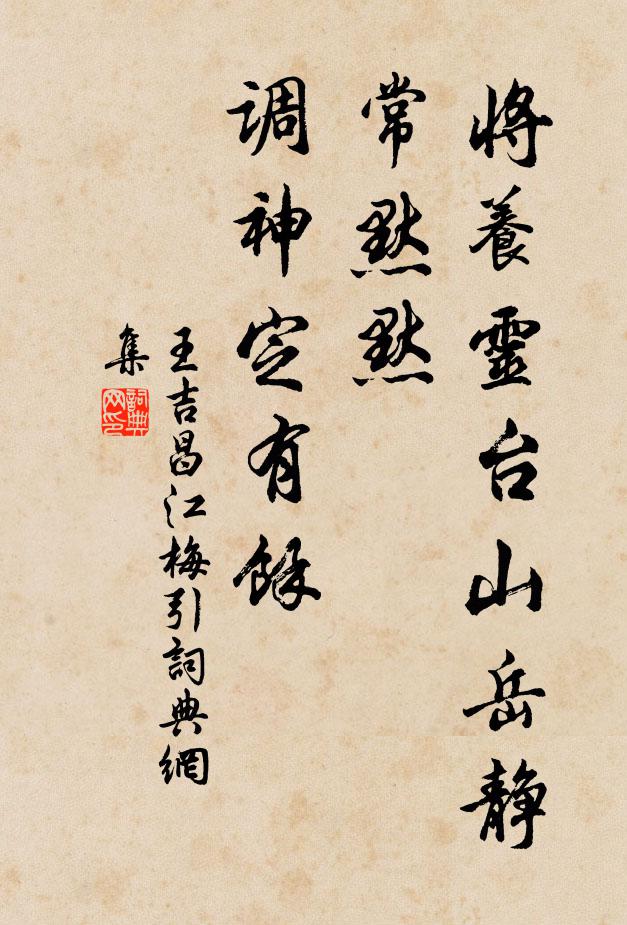 將養靈台山岳靜
常默默
调神定有餘
王吉昌江梅引詞典網
集
詞典
网印